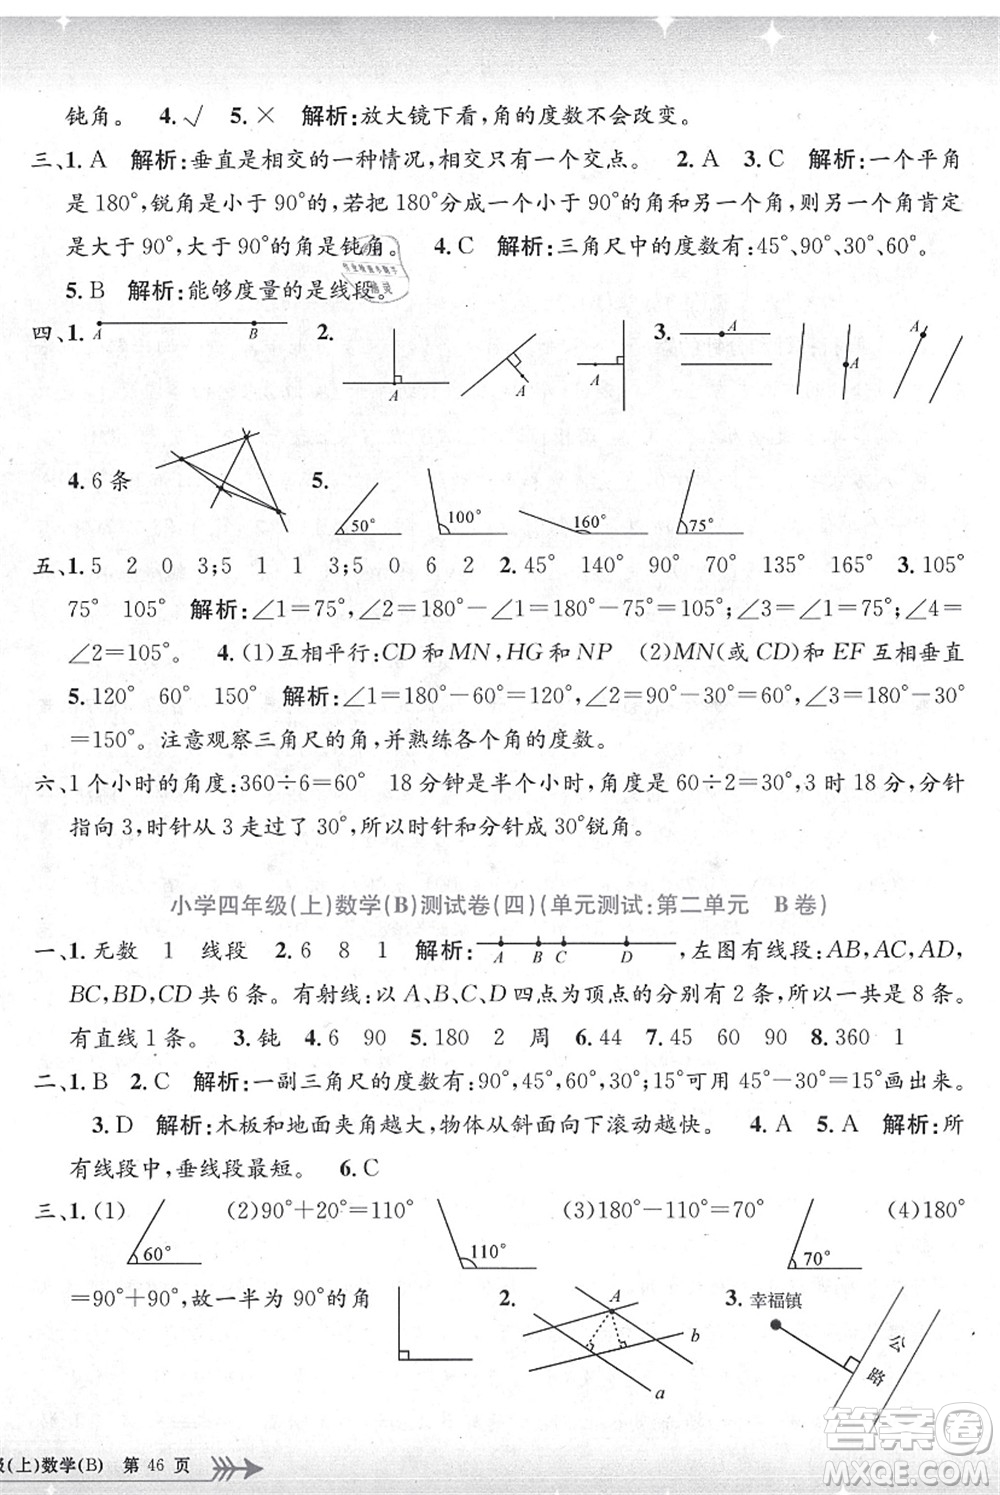 钝角。 4.√ 5.× 解析:放大镜下看,角的度数不会改变。
三、1. A 解析:垂直是相交的一种情况,相交只有一个交点。 2. A 3. C 解析:一个平角
是180°,锐角是小于90°的,若把180°分成一个小于90°的角和另一个角,则另一个角肯定
是大于90°,大于90°的角是钝角。 4. C 解析:三角尺中的度数有:45°、90°、30°、60°。
5. B 解析:能够度量的是线段。
四、1. A B 2. A A A 3. A A A
4. 6条 5. 50° 100° 160° 75°
五、1. 5 2 0 3;5 1 1 3;5 0 6 2 2. 45° 140° 90° 70° 135° 3. 105°
75° 105° 解析:∠1=75°,∠2=180°-∠1=180°-75°=105°;∠3=∠1=75°,∠4=
∠2=105°。 4. (1)互相平行:CD和MN,HG和NP (2)MN(或CD)和EF互相垂直
5. 120° 60° 150° 解析:∠1=180°-60°=120°,∠2=90°-30°=60°,∠3=180°-30°
=150°。注意观察三角尺的角,并熟练各个角的度数。
六、1个小时的角度:360÷6=60° 18分钟是半个小时,角度是60÷2=30°,3时18分,分针
指向3,时针从3走过了30°,所以时针和分针成30°锐角。
小学四年级(上)数学(B)测试卷(四)(单元测试:第二单元 B卷)
一、1. 无数 1 线段 2. 6 8 1 解析: A B C D ,左图有线段:AB,AC,AD,
BC,BD,CD共6条。有射线:以A、B、C、D四点为顶点的分别有2条,所以一共是8条。
有直线1条。 3. 钝 4. 6 90 5. 180 2 周 6. 44 7. 45 90 90 8. 360 1
二、1. B 2. C 解析:一副三角尺的度数有:90°,45°,60°,30°;可用45°-30°=15°画出来。
3. D 解析:木板和地面夹角越大,物体从斜面向下滚动越快。 4. A 5. A 解析:所
有线段中,垂线段最短。 6. C
三、1. (1) 60° (2)90°+20°=110° 110° (3)180°-110°=70° 70° (4)180°
=90°+90°,故一半为90°的角 2. A b a 3. 幸福镇 公路
级(上)数学(B) 第46页
答案卷
MXQE.COM